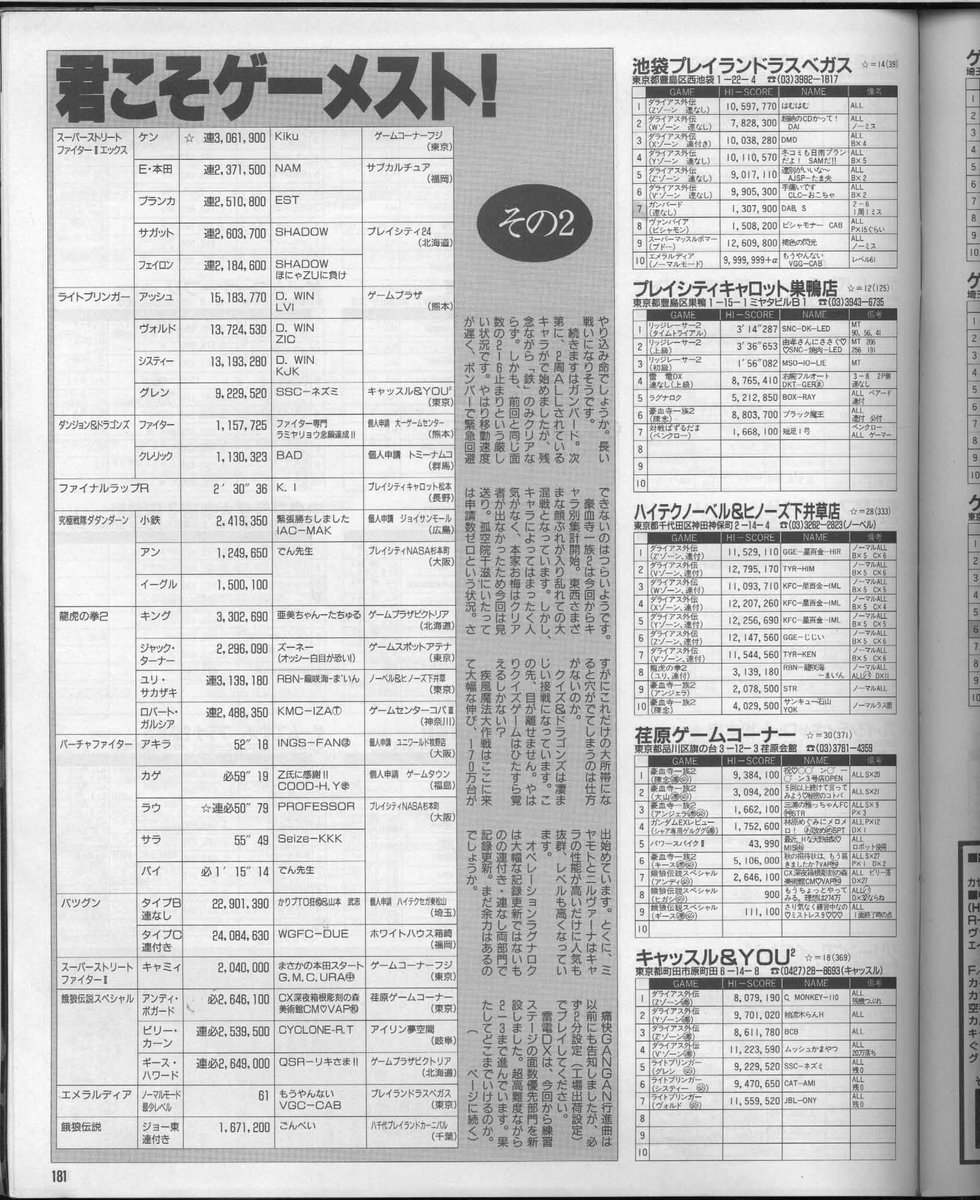 君こそゲーメスト!
その2
スーパーストリートファイターⅡエックス ケン ☆ 連3,061,900 Kiku ゲームコーナーフジ(東京)
E・本田 連2,371,500 NAM サブカルチュア(福岡)
ブランカ 連2,510,800 EST
サガット 連2,603,700 SHADOW プレイシティ24(北海道)
フェイロン 連2,184,600 SHADOW ほにゃZUに負け
ライトブリンガー アッシュ 15,183,770 D. WIN LVI ゲームプラザ(熊本)
ヴォルド 13,724,530 D. WIN ZIC
システィー 13,193,280 D. WIN KJK
グレン 9,229,520 SSC-ネズミ キャッスル&YOU²(東京)
ダンジョン&ドラゴンズ ファイター 1,157,725 ファイター専門 ラミヤリョウ念願達成!! 個人申請 大一ゲームセンター(熊本)
クレリック 1,130,323 BAD 個人申請 トミーナムコ(群馬)
ファイナルラップR 2′30″36 K. I プレイシティキャロット松本(長野)
究極戦隊ダダンダーン 小鉄 2,419,350 緊張勝ちしました IAC-MAK 個人申請 ジョイサンモール(広島)
アン 1,249,650 でん先生 プレイシティNASA杉本町(大阪)
イーグル 1,500,100
龍虎の拳2 キング 3,302,690 亜美ちゃんーたちゅる ゲームプラザビクトリア(北海道)
ジャック・ターナー 2,296,090 ズーネー(オッシー白目が恐い!) ゲームスポットアテナ(東京)
ユリ・サカザキ 連3,139,180 RBN-龍咲海-ま゛いん ノーベル&ヒノーズ下井草(東京)
ロバート・ガルシア 連2,488,350 KMC-IZAⓉ ゲームセンターコパⅢ(神奈川)
バーチャファイター アキラ 52″18 INGS-FAN 個人申請 ユニワールド牧野店(大阪)
カゲ 必59″19 Z氏に感謝!! COOD-H.Y 個人申請 ゲームタウン(福島)
ラウ ☆連必50″79 PROFESSOR プレイシティNASA杉本町(大阪)
サラ 55″49 Seize-KKK
パイ 必1′15″14 でん先生
バツグン タイプB連なし 22,901,390 個人申請 ハイテクセガ東松山(埼玉)
タイプC連付き 24,084,630 WGFC-DUE ホワイトハウス箱崎(福岡)
スーパーストリートファイターⅡ キャミィ 2,040,000 まさかの本田スタート G.M.C.URA ゲームコーナーフジ(東京)
餓狼伝説スペシャル アンディ・ボガード 必2,646,100 CX深夜箱根彫刻の森美術館CM♡VAP 荏原ゲームコーナー(東京)
ビリー・カーン 連必2,539,500 CYCLONE-R.T アイリン夢空間(岐阜)
ギース・ハワード 連必2,649,000 QSR-リキさま!! ゲームプラザビクトリア(北海道)
エメラルディア ノーマルモード最少レベル 61 もうやんない VGC-CAB プレイランドラスベガス(東京)
餓狼伝説 ジョー東連付き 1,671,200 ごんべい 八千代プレイランドカーニバル(千葉)
やり込み命でしょうか。長い
戦いになりそうです。
続きますはガンバード。次
第に、2周ALLされている
キャラがで始めましたが、残
念ながら「鉄」のみクリアな
らず。しかも、前回と同じ面
数の2-6止まりという厳し
い状況です。やはり移動速度
が遅く、ボンバーで緊急回避
できないのはつらいようです。
豪血寺一族2は今回からキ
ャラ別集計開始。東西さまざ
まな顔ぶれが入り乱れての大
混戦となっています。しかし、
キャラによってはまったく人
気がなく、本家お梅はクリア
者が出なかったため今回は見
送り。孤空院干滋にいたって
は申請数ゼロという状況。さ
すがにこれだけの大所帯にな
ると穴がでてしまうのは仕方
がないのか。
クイズ&ドラゴンズは凄ま
じい接戦になっています。こ
の先、目が離せません。やは
りクイズゲームはひたすら覚
えるしかない!?
疾風魔法大作戦はここに来
て大幅な伸び、170万台が
出始めています。とくに、ミ
ヤモトとニルヴァーナはキャ
ラの性能が高いだけに人気も
抜群、レベルも高くなってい
ます。
オペレーションラグナロク
は大幅な記録更新ではないも
の の連付き・連なし両部門で
記録更新。まだ余力はあるの
でしょうか。
痛快GANGAN行進曲は
以前にも告知しましたが、必
ず2分設定(工場出荷設定)
でプレイしてください。
雷電DXは、今回から練習
ステージの面数優先部門を新
設しました。超高難度ながら
2-3まで進んでいます。果
たしてどこまでいけるのか。
( ページに続く)
池袋プレイランドラスベガス ☆=14(39)
東京都豊島区西池袋1-22-4 ☎(03)3982-1817
GAME HI-SCORE NAME 備考
1 ダライアス外伝(Zゾーン 連なし) 10,597,770 はむはむ ALL
2 ダライアス外伝(Wゾーン 連なし) 7,828,300 DAI ALL ノーミス
3 ダライアス外伝(Xゾーン 連付き) 10,038,280 DMD ALL B×4
4 ダライアス外伝(Yゾーン 連なし) 10,110,570 冬コミも日雨プランだよ! SAMだ!! ALL B×5
5 ダライアス外伝(Z′ゾーン 連なし) 9,017,110 AJSP-たま夫 ALL B×2
6 ダライアス外伝(V′ゾーン 連なし) 9,905,300 手痛いです CLC-おこちゃ ALL B×2
7 ガンバード(連なし) 1,307,900 DAB. S 2-6 1周1ミス
8 ヴァンパイア(ビシャモン) 1,508,200 ビシャモナー CAB ALL P×15ぐらい
9 スーパーマッスルボマー(ブドー) 12,609,800 褐色の閃光 ALL ノーミス
10 エメラルディア(ノーマルモード) 9,999,999+α もうやんない VGG-CAB レベル61
プレイシティキャロット巣鴨店 ☆=12(125)
東京都豊島区巣鴨1-15-1ミヤタビルB1 ☎(03)3943-6735
GAME HI-SCORE NAME 備考
1 リッジレーサー2(タイムトライアル) 3′14″287 SNC-DK-LED MT 90, 56, 41
2 リッジレーサー2(上級) 3′36″653 由孝さんにささぐ♡♡SNC-焼肉-LED MT 206 256 191
3 リッジレーサー2(初級) 1′56″082 MSO-IO-LIE MT
4 雷電DX 連なし(上級) 8,765,410 右腕フルオート DKT-GER 3-8 2P側 連なし
5 ラグナロク 5,212,850 BOX-RAY ALL ベアード 連付
6 豪血寺一族2(陳念) 8,803,700 ブラック魔王 ALL 連付 公付
7 対戦ぱずるだま(ペンクロー) 1,668,100 短足1号 ペンクロー ALL ゲーマー
8
9
10
ハイテクノーベル&ヒノーズ下井草店 ☆=28(333)
東京都千代田区神田神保町2-14-4 ☎(03)3262-2823(ノーベル)
GAME HI-SCORE NAME 備考
1 ダライアス外伝(Z′ゾーン、連付) 11,529,110 GGE-星百金-HIR ノーマルALL B×5 C×6
2 ダライアス外伝(Vゾーン、連付) 12,795,170 TYR-HIM ノーマルALL B×5 C×6
3 ダライアス外伝(Wゾーン、連付) 11,093,710 KFC-星百金-IML ノーマルALL B×5 C×6
4 ダライアス外伝(Xゾーン、連付) 12,207,260 KFC-星百金-IML ノーマルALL B×5 C×4
5 ダライアス外伝(Yゾーン、連付) 12,256,690 KFC-星百金-IML ノーマルALL B×5 C×5
6 ダライアス外伝(Zゾーン、連付) 12,147,560 GGE-じじい ノーマルALL B×5 C×6
7 ダライアス外伝(V′ゾーン、連付) 11,544,560 TYR-KEN ノーマルALL B×5 C×6
8 龍虎の拳2(ユリ、連付) 3,139,180 RBN-龍咲海-まいん ノーマルALL D×11
9 豪血寺一族2(アンジェラ) 2,078,500 STR ノーマルALL
10 豪血寺一族2(陳念) 4,029,500 サンキュー石山 YOK ノーマルラス面
荏原ゲームコーナー ☆=30(371)
東京都品川区旗の台3-12-3荏原会館 ☎(03)3781-4359
GAME HI-SCORE NAME 備考
1 豪血寺一族2 9,384,100 ン3号店OPEN ALL S×20
2 豪血寺一族2 3,094,200 5回以上続けて言ってみよう ALL S×21
3 豪血寺一族2 1,662,100 三浦の雅っちゃんFC STR ALL S×9 P×3
4 ガンダムEXレビュー 1,752,600 林原めぐみにメロメロ! ALL P×12 D×1
5 パワースパイクⅡ 43,990 ALL ロボット使用
6 豪血寺一族2 5,106,000 ALL S×27 P×1 D×2
7 餓狼伝説スペシャル 2,646,100 CX深夜箱根彫刻の森美術館CM♡VAP ALL ビリー落 D×27
8 餓狼伝説スペシャル 900 もうちょっとやってみる、理想は274万 ALL D×菜ならね
9 餓狼伝説スペシャル 111,100 さり気なく練習中なの♡ミストレス9♡♡♡ 1面終了時の点
10
キャッスル&YOU² ☆=18(369)
東京都町田市原町田6-14-8 ☎(0427)28-8693(キャッスル)
GAME HI-SCORE NAME 備考
1 ダライアス外伝 8,079,190 C, MONKEY-110 ALL 残機つぶれ
2 ダライアス外伝 9,701,020 柏流木らんH ALL
3 ダライアス外伝 8,611,780 BCB ALL
4 ダライアス外伝 11,223,590 ムッシュかまやつ ALL 20万落ち
5 ライトブリンガー(グレン) 9,229,520 SSC-ネズミ ALL 残0
6 ライトブリンガー(システィー) 9,470,650 CAT-AMI ALL 残0
7 ライトブリンガー(ヴォルド) 11,559,520 JBL-ONY ALL 残0
8
9
10
181